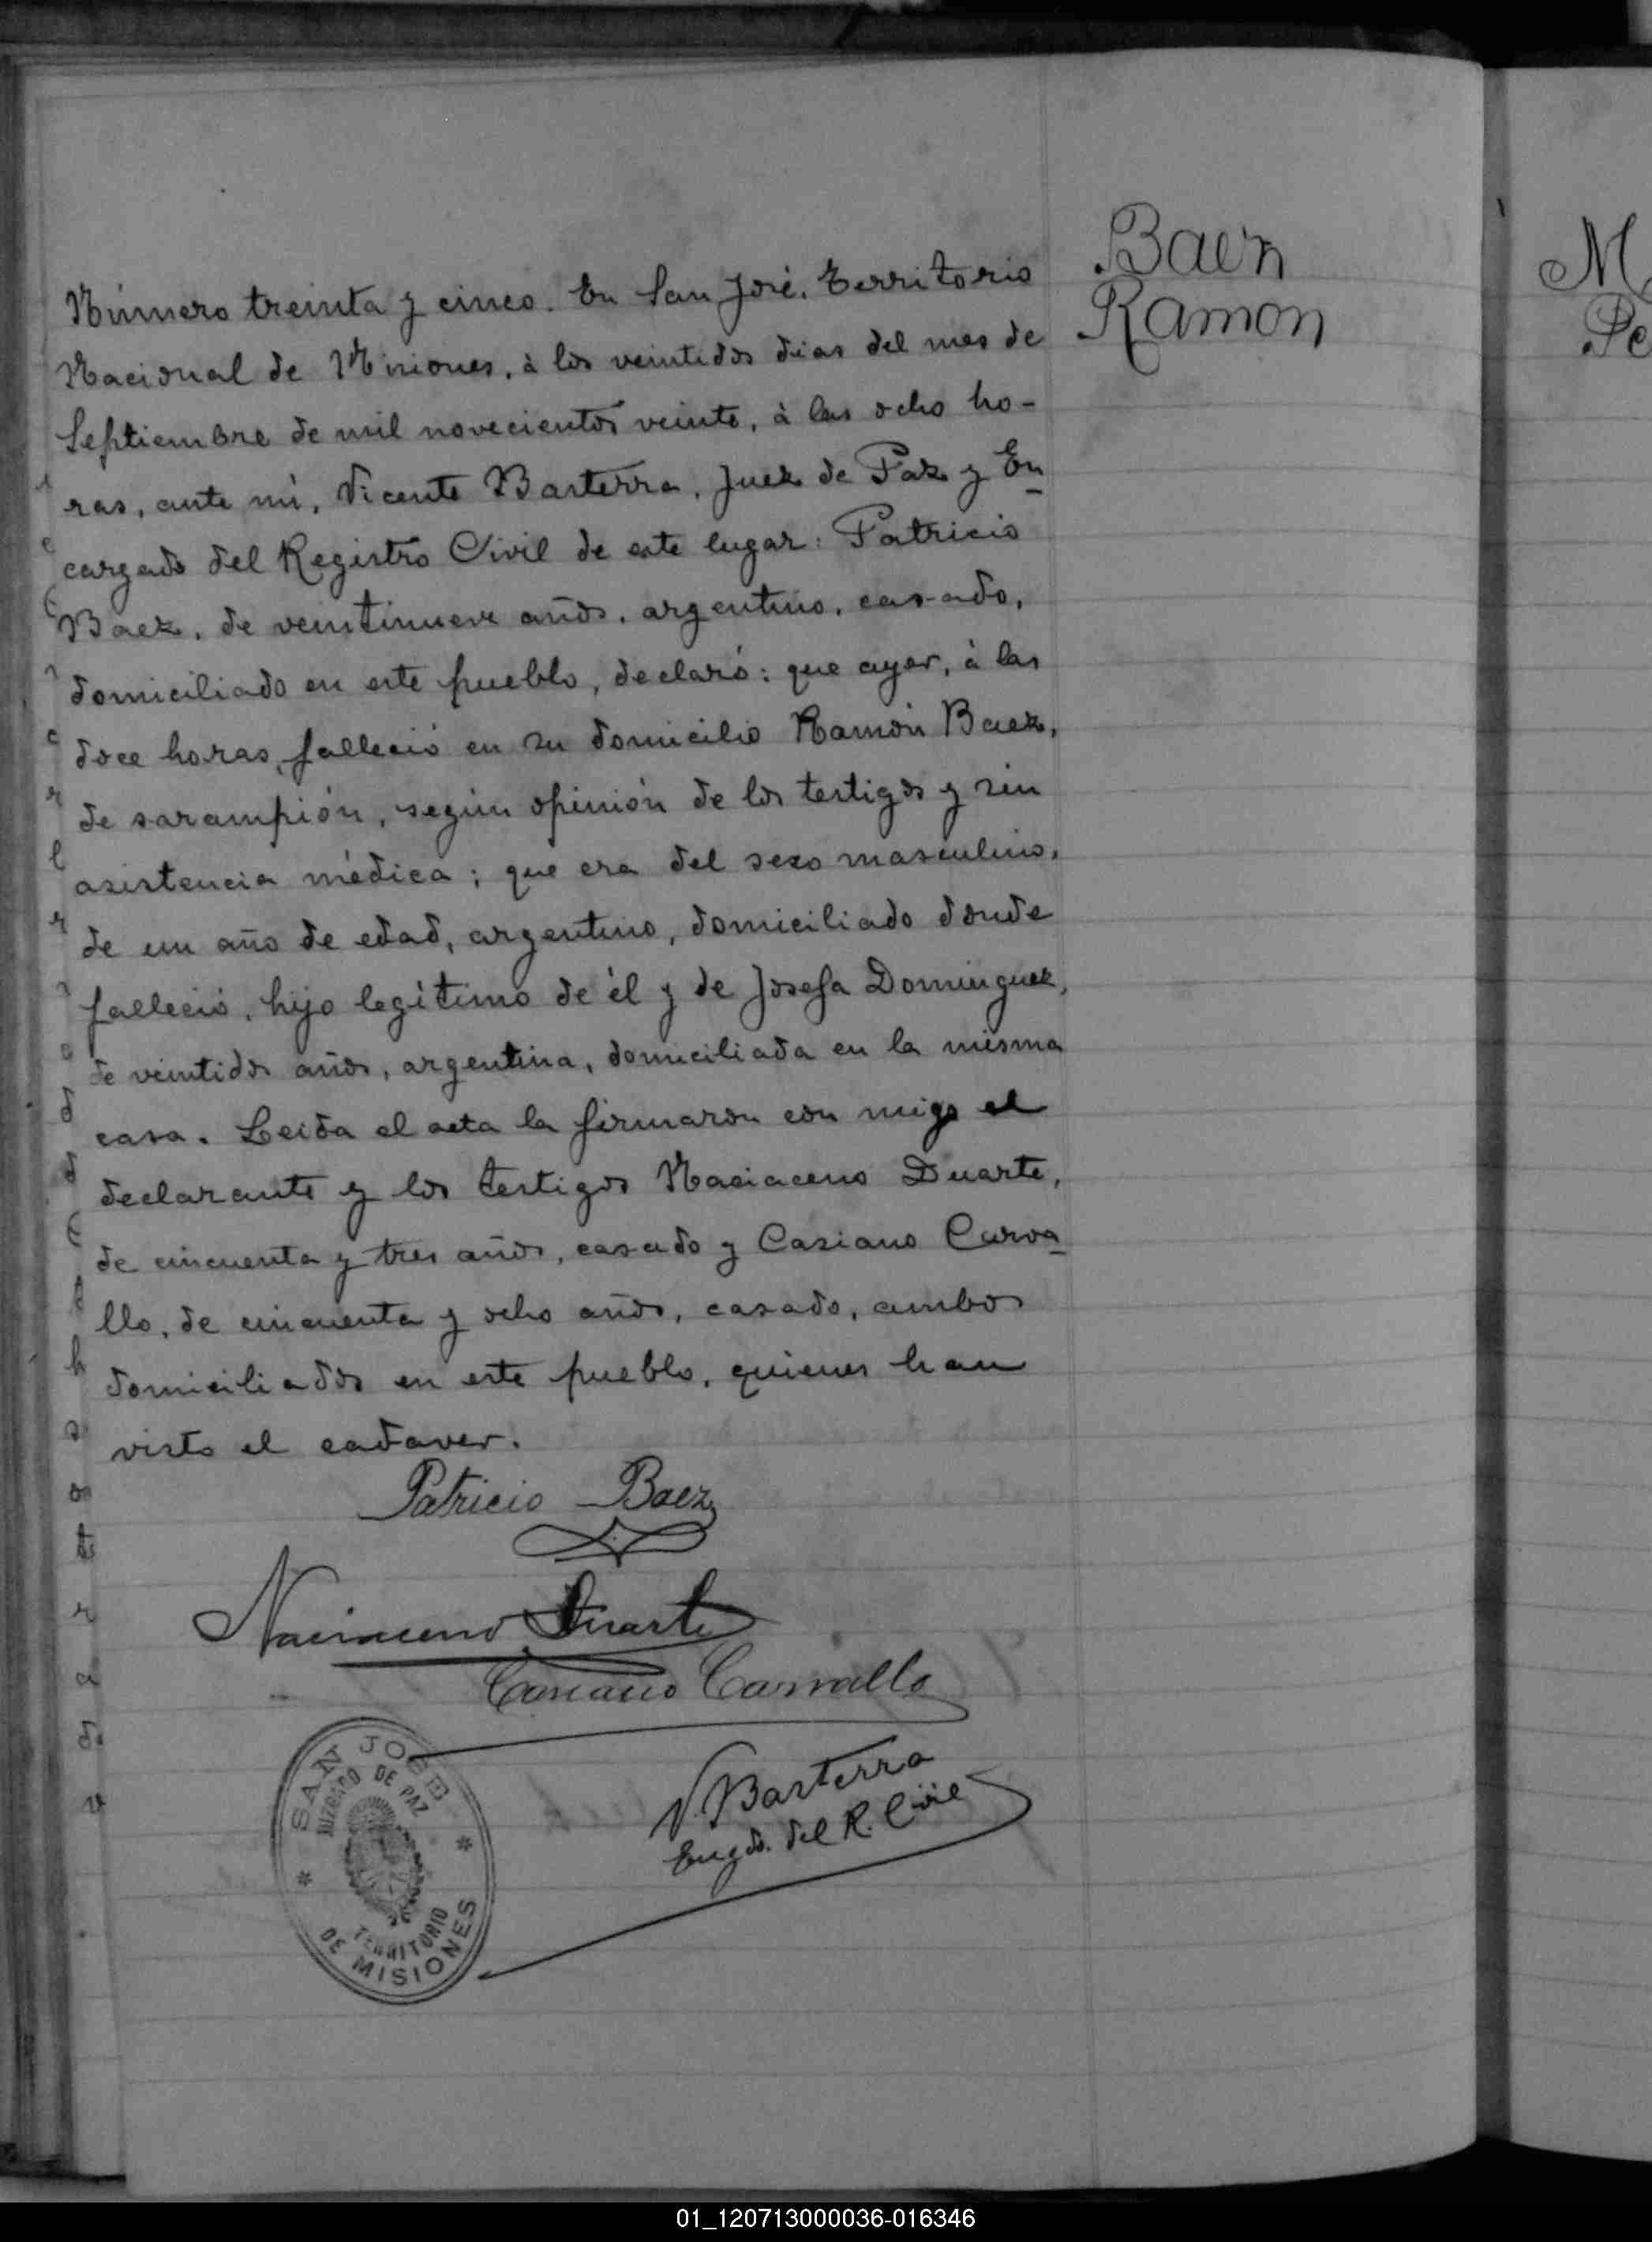 Baez
Ramon
Número treinta y cinco. En San José, Territorio
Nacional de Misiones, à los veintidos dias del mes de
Septiembre de mil novecientos veinte, à las ocho ho-
ras, ante mi, Vicente Basterra, Juez de Paz y En
cargado del Registro Civil de este lugar: Patricio
Baez, de veintinueve años, argentino, casado,
domiciliado en este pueblo, declaró: que ayer, à las
doce horas, falleció en su domicilio Ramón Baez,
de sarampión, según opinión de los testigos y sin
asistencia médica; que era del sexo masculino,
de un año de edad, argentino, domiciliado donde
falleció, hijo legítimo de él y de Josefa Dominguez,
de veintidos años, argentina, domiciliada en la misma
casa. Leida el acta la firmaron con migo el
declarante y los testigos Naciaceno Duarte,
de cincuenta y tres años, casado y Casiano Carva
llo, de cincuenta y ocho años, casado, ambos
domiciliados en este pueblo, quienes han
visto el cadaver.
Patricio Baez
Duarte
Casiano Carvallo
V. Basterra
Engdo. del R. Civil
SAN JOSE
JUZGADO DE PAZ
TERRITORIO
DE MISIONES
M
Pe
01_120713000036-016346